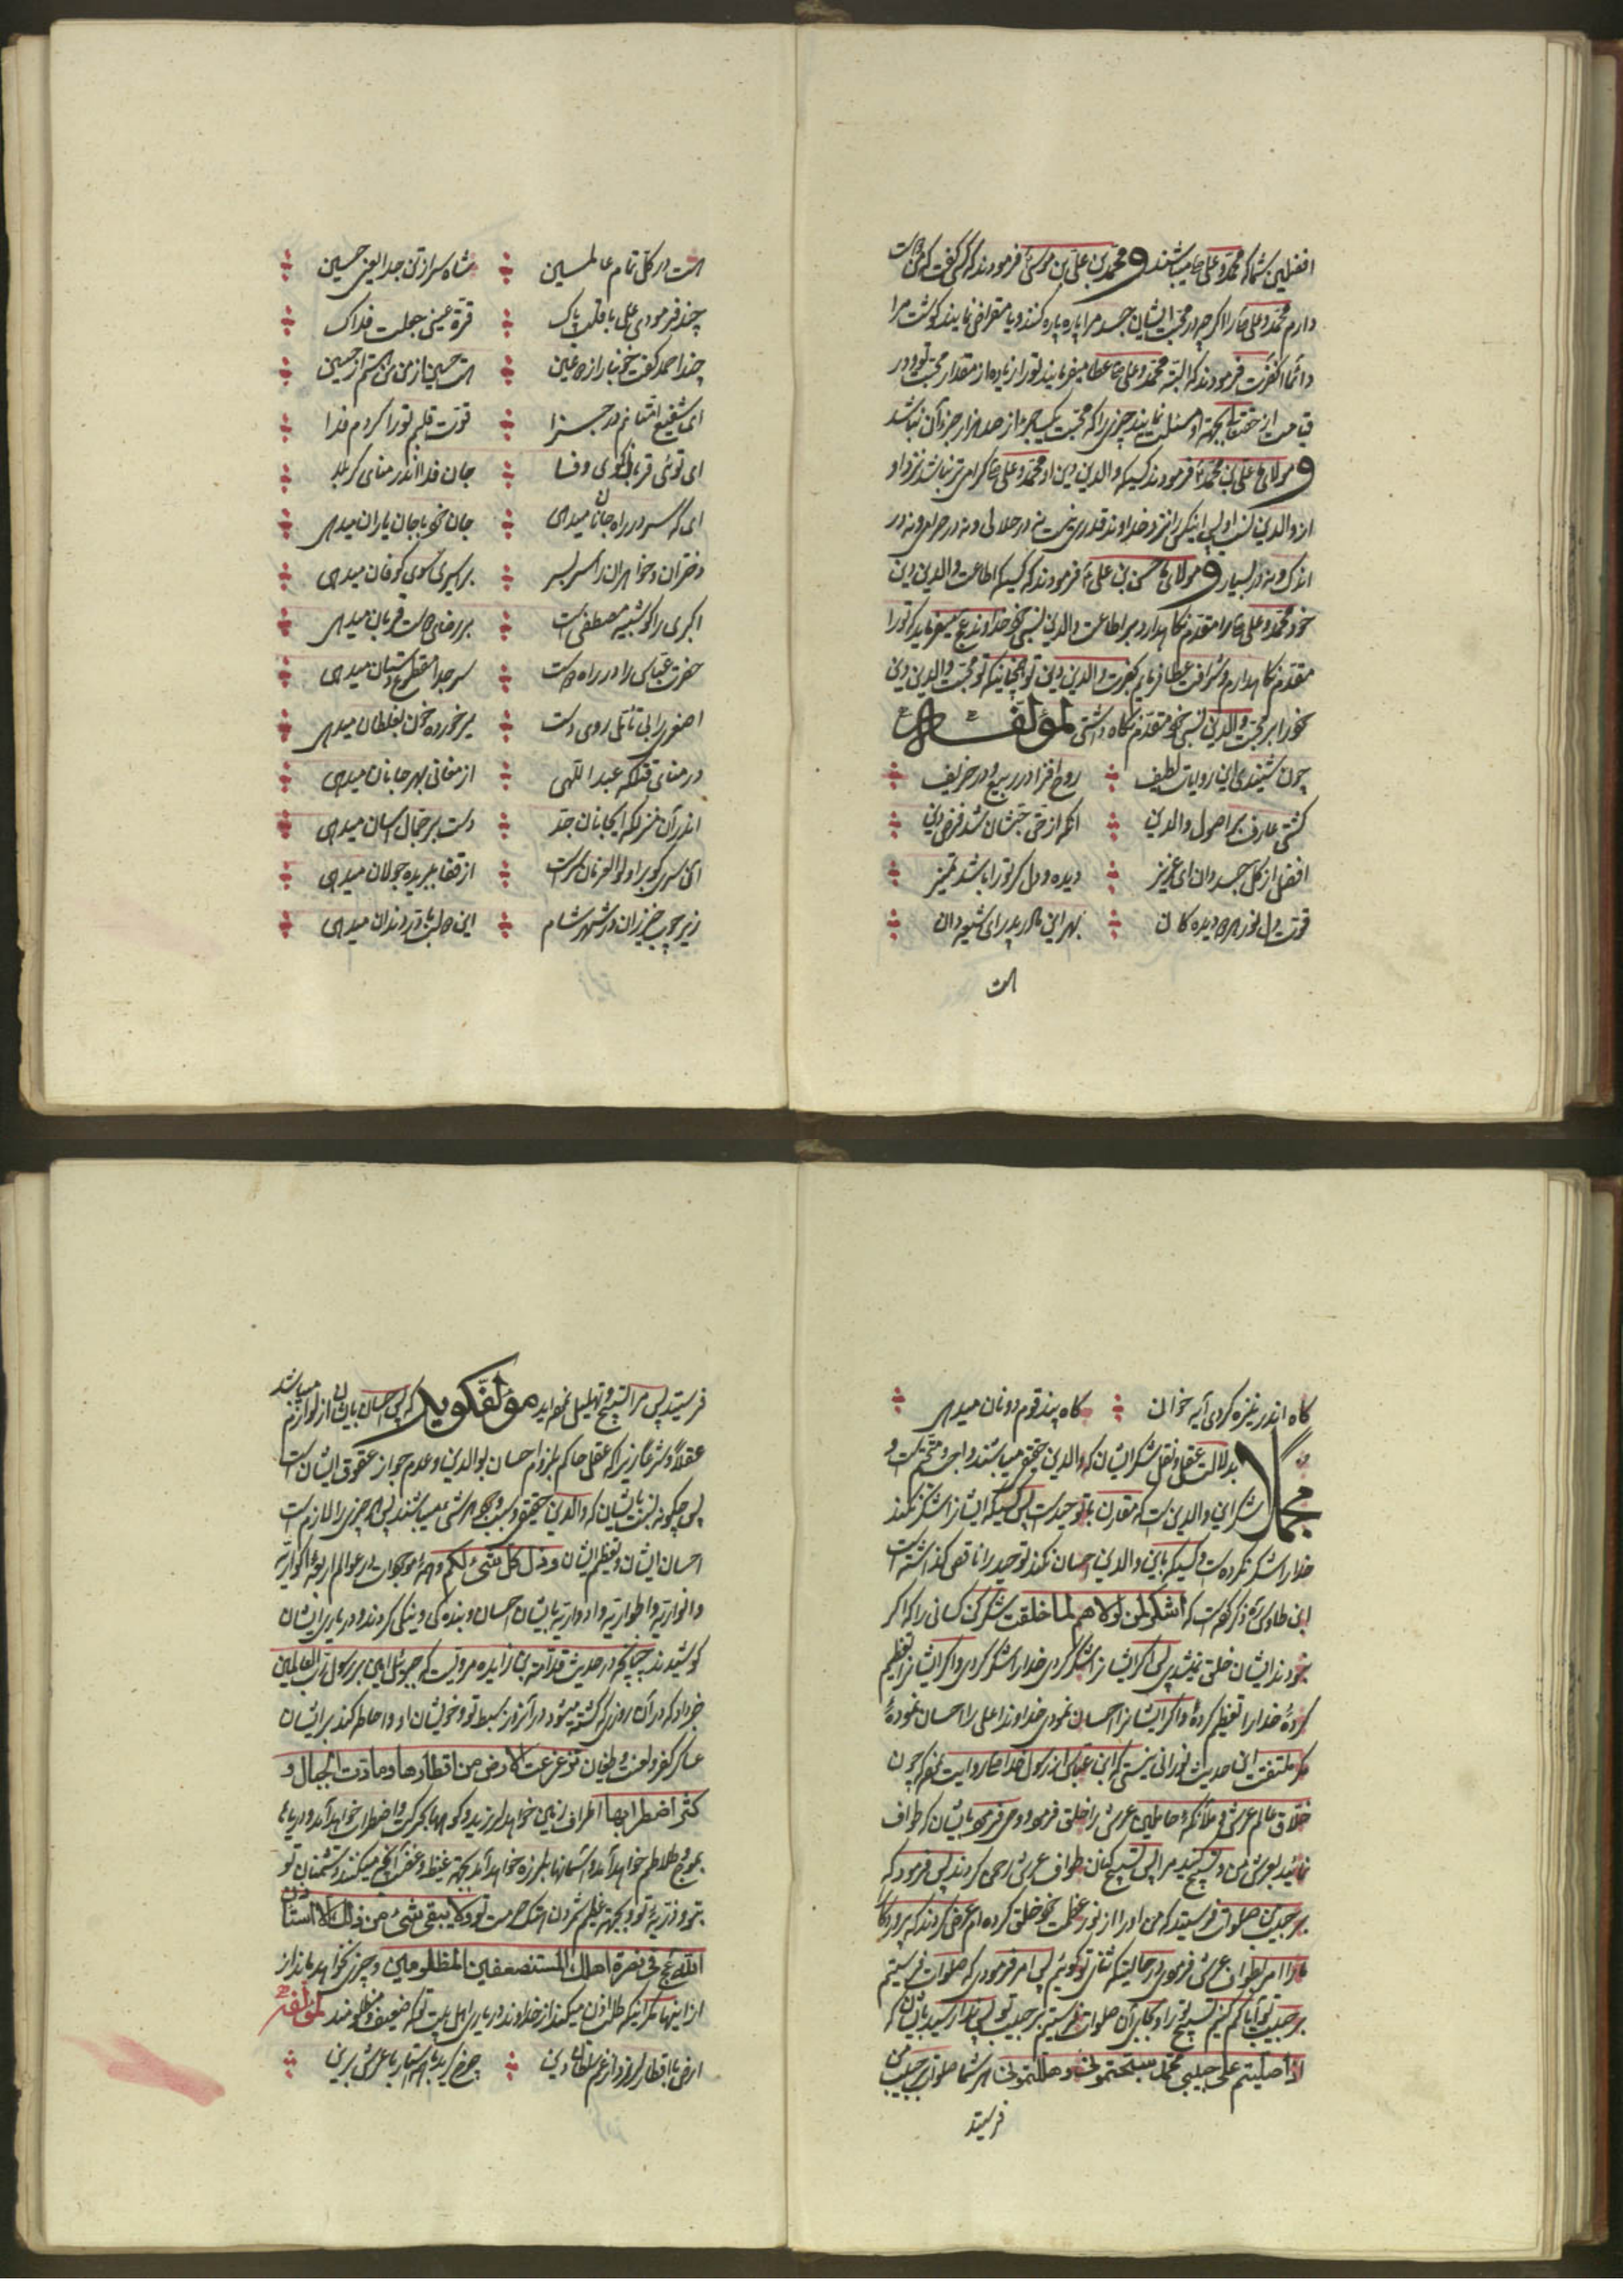 افضلین شما که محمد و علی ص میباشند و محمد بن علی بن موسی ع فرمودند که کسی گفت که من دوست
دارم محمد و علی ص را اگر چه در محبت ایشان جسد مرا پاره پاره کنند و یا مقراض نمایند گوشت مرا
دائما آنحضرت فرمودند که البته محمد و علی ص عطا میفرمایند تو را زیاده از مقدار محبت تو و در
قیامت از حقتعالی بجهة او مسئلت نمایند چیزی را که محبت یکجزء از صد هزار جزء آن نباشد
و مولای ما علی بن محمد ع فرمودند کسیکه والدین دین او محمد و علی ص گرامی تر نباشد نزد او
از والدین نسب او پس اینکس را نزد خداوند قدری نیست نه در حلال و نه در حرام و نه در
اندک و نه در بسیار و مولای ما حسن بن علی ع فرمودند که کسیکه اطاعت والدین دین
خود محمد و علی ص را مقدم نگاهدارد بر اطاعت والدین نسبی خود خداوند عج میفرماید که تو را
مقدم نگاهدارم و شرافت عطا فرمایم بحضرت والدین دین تو همچنانیکه تو محبت والدین دین
خود را بر محبت والدین نسبی خود مقدم نگاه داشتی لمؤلفه
چون شنیدی این روایات لطیف روح افزا در ربیع و در خریف
گشتی عارف بر اصول والدین آنکه از حق حبشان شد فرض دین
افضل از کل جسد دان ای عزیز دیده و دل گر تو را باشد تمیز
قوت دل نور هر دیده کان بهر این مادر پدر ای شیعه دان
هست
هست در کل تمام عالمین شاه سر از تن جدا یعنی حسین
چند فرمودی علی با قلب پاک قرة عینی جعلت فداک
چند احمد گفت خونبار از دو عین هست حسین از من من هستم از حسین
ای شفیع امتانم در جزا قوت قلبم تو را کردم فدا
ای توئی قربان کوی وفا جان فدا اندر منای کربلا
ای که سر در راه جانان میدهی جان خود با جان یاران میدهی
دختران و خواهران را سر بسر بر اسیری سوی کوفان میدهی
اکبری را کو شبیه مصطفی است بر رضای دوست قربان میدهی
حضرت عباس را در راه دوست سر جدا مقطوع دستان میدهی
اصغری را بی تأمل روی دست تیر خورده خون بغلطان میدهی
در منای قتلگه عبد اللهی ارمغانی بهر جانان میدهی
اندر آن منزلگه ای جانان جد دست بر جمال آسان میدهی
این سری کو بر اولوالعزمان سر است از قفا ببریده جولان میدهی
زیر چوب خیزران در شهر شام این دو لب با در دندان میدهی
گاه اندر نیزه کردی آیه خوان گاه پند قوم دونان میدهی
مجملا بدلالت عقل و نقل شکر ایشان که والدین حقیقی میباشند واجب و متحتم است و
شکر این والدین است که مقارن با توحید است پس کسیکه ایشانرا شکر نکند
خدا را شکر نکرده است و کسیکه باین والدین احسان نکند توحید را ناقص گذاشته است
ابن طاوس ره ذکر نموده است که اشکر لمن لولاهم لما خلقت شکر کن کسانی را که اگر
نبودند ایشان خلق نمیشدی پس اگر ایشانرا شکر کردی خدا را شکر کردی و اگر ایشانرا تعظیم
کردهٔ خدا را تعظیم کردهٔ و اگر ایشانرا احسان نمودی خداوند اعلی را احسان نمودهٔ
مگر ملتفت این حدیث نورانی نیستی که ابن عباس از رسول خدا ص روایت نموده که چون
خلاق عالم عرش و ملائکه و حاملین عرش را خلق فرمود و وحی فرمود بایشان که طواف
نمائید بعرش من و تسبیح کنید مرا پس تسبیح کنان طواف عرش رحمن کردند پس فرمود که
بر حبیب من صلوات فرستید که من او را از نور عظمت خود خلق کرده ام عرض کردند که پروردگارا
ما را امر بطواف عرش فرمودی در حالتیکه ثنای تو گوئیم پس امر فرمودی که صلوات فرستیم
بر حبیب تو آیا کم کنیم تسبیح تو را و بجای آن صلوات فرستیم بر حبیب تو پس ندا رسید بایشان که
اذا صلیتم علی حبیبی محمد سبحتمونی و هللتمونی هر گاه شما صلوات بر حبیب من
فرستید
فرستید پس مرا تسبیح و تهلیل نموده اید مؤلف گوید که پس احسان بایشان از لوازم میباشد
عقلا و شرعا زیرا که عقل حاکم بلزوم احسان بوالدین و عدم جواز عقوق ایشان است
پس چگونه نسبت بایشان که والدین حقیقی و سبب وجود هر شیء میباشند پس هر چیزی را لازمست
احسان ایشان و تعظیم ایشان و ذل کل شیء لکم و همهٔ موجودات در عوالم اربعهٔ اکواریه
و انواریه و اطواریه و ادواریه بایشان احسان و بنده گی و نیکی کردند و در یاری ایشان
کوشیدند چنانچه در حدیث قدامة بن زایده مرویست که جبرئیل امین بر رسول رب العالمین
خبر داد که در آن روزی که کشته میشود در آنروز سبط تو و خویشان او و احاطه کند بر ایشان
عساکر کفر و لعنت و طغیان تزعزعت الارض من اقطارها و مادت الجبال و
کثر اضطرابها اطراف زمین خواهد لرزید و کوهها بحرکت و اضطراب خواهد آمد و دریاها
بموج و تلاطم خواهد آمد و آسمانها بلرزه خواهد آمد بجهة غیظ و غضب آنچه میکنند دشمنان تو
بتو و ذریهٔ تو و بجهة عظیم شمردن هتک حرمت تو و لا یبقی شیء من ذلک الا استأذن
الله عج فی نصرة اهلک المستضعفین المظلومین و چیزی نخواهد ماند از
از اینها مگر اینکه طلب اذن میکند از خداوند در یاری اهل بیت تو که ضعیف و مظلومند لمؤلفه
ارض با اقطار لرزد از غم سلطان دین چرخ گرید با هم استار با عرش برین